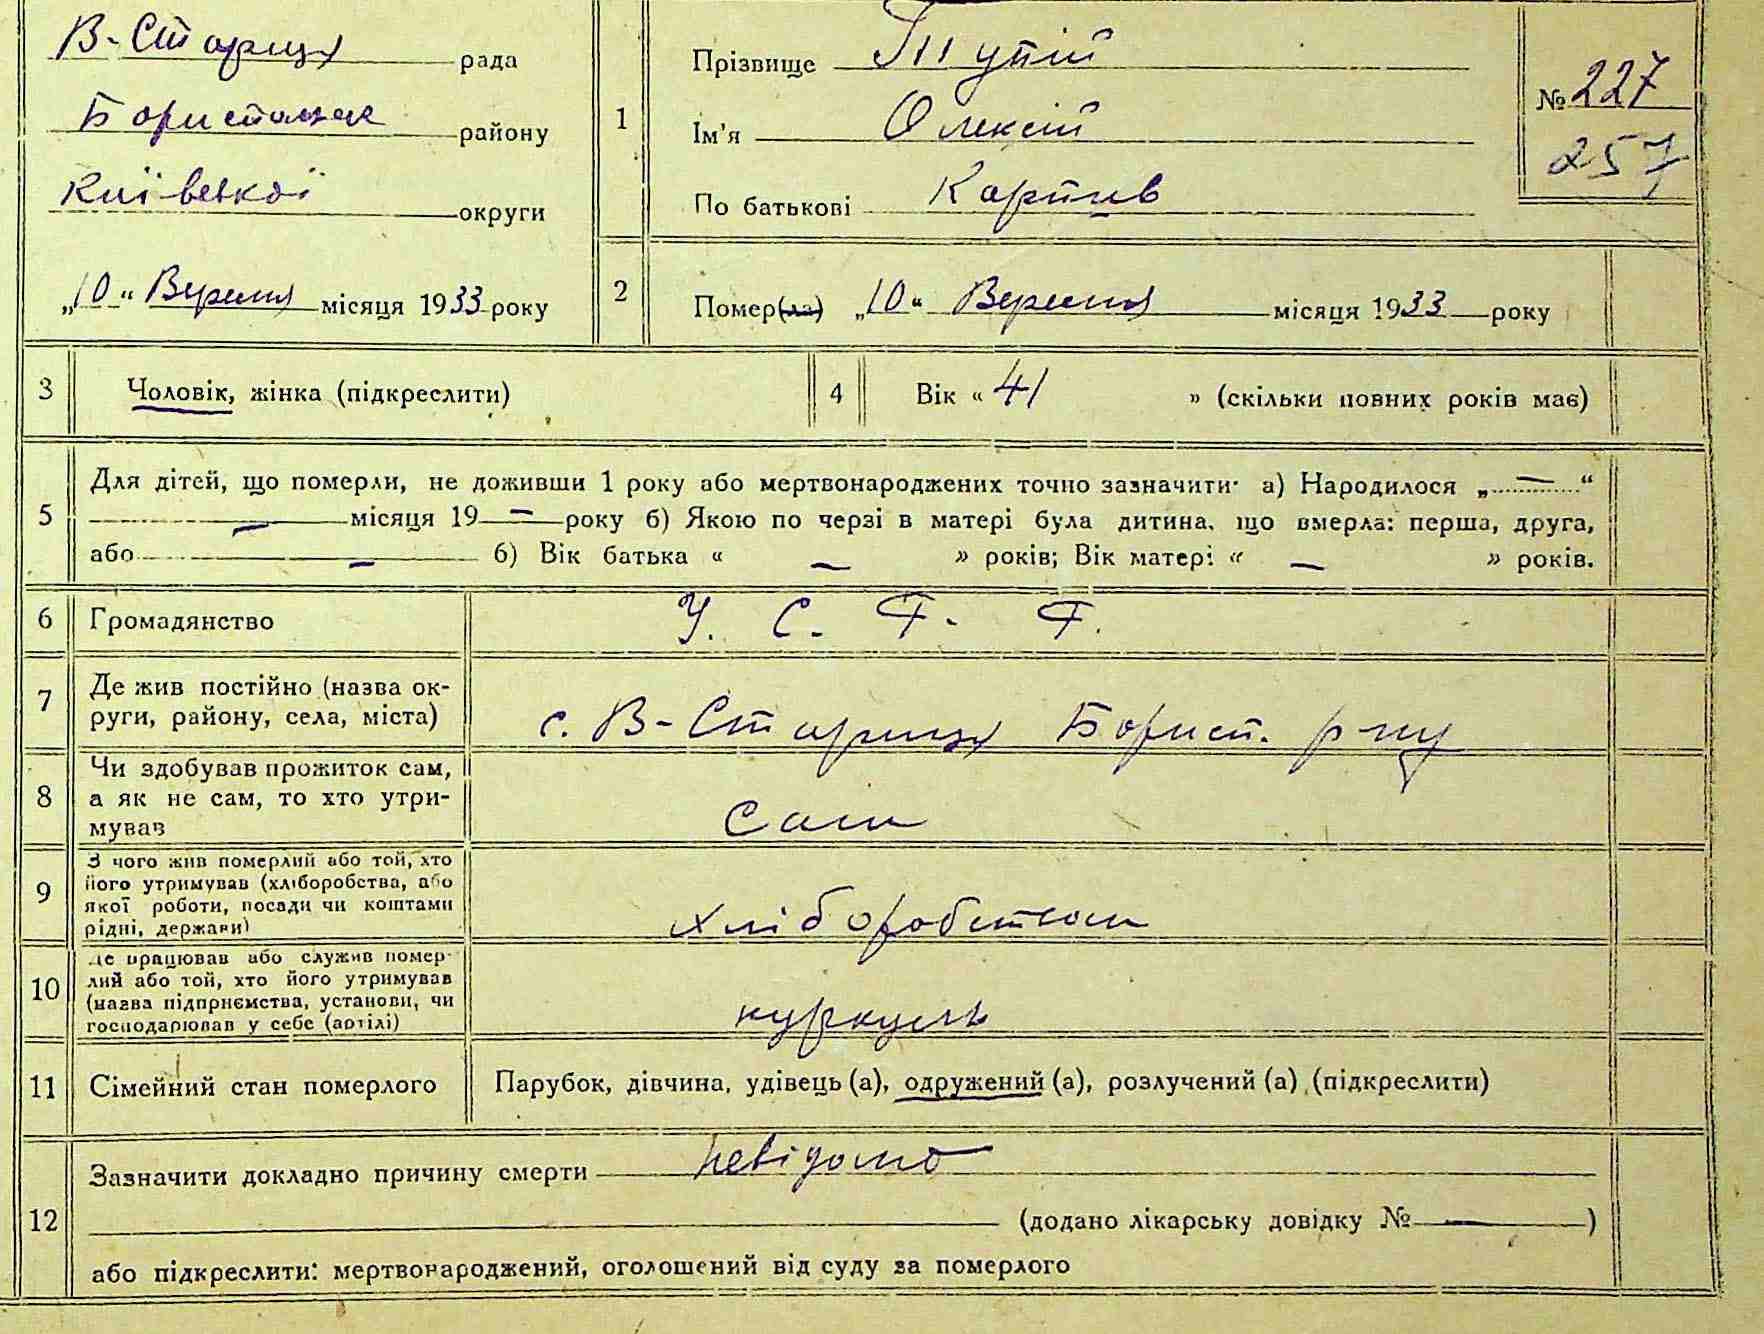 В-Стариця рада
Бориспольськ району
Київської округи
„10“ Вересня місяця 1933 року
1
Прізвище Тупій
Ім'я Олексій
По батькові Карпів
№ 227
257
2
Помер(ла) „10“ Вересня місяця 1933 року
3
Чоловік, жінка (підкреслити)
4
Вік « 41 » (скільки повних років має)
5
Для дітей, що померли, не доживши 1 року або мертвонароджених точно зазначити· а) Народилося „—“
— місяця 19 — року б) Якою по черзі в матері була дитина, що вмерла: перша, друга,
або — б) Вік батька « — » років; Вік матері « — » років.
6
Громадянство
У. С. Р. Р.
7
Де жив постійно (назва ок-
руги, району, села, міста)
с. В-Стариця Борисп. р-ну
8
Чи здобував прожиток сам,
а як не сам, то хто утри-
мував
Сам
9
З чого жив померлий або той, хто
його утримував (хліборобства, або
якої роботи, посади чи коштами
рідні, держави)
хліборобством
10
Де працював або служив помер-
лий або той, хто його утримував
(назва підприємства, установи, чи
господарював у себе (артілі)
куркуль
11
Сімейний стан померлого
Парубок, дівчина, удівець (а), одружений (а), розлучений (а) (підкреслити)
12
Зазначити докладно причину смерти невідомо
(додано лікарську довідку № —)
або підкреслити: мертвонароджений, оголошений від суду за померлого